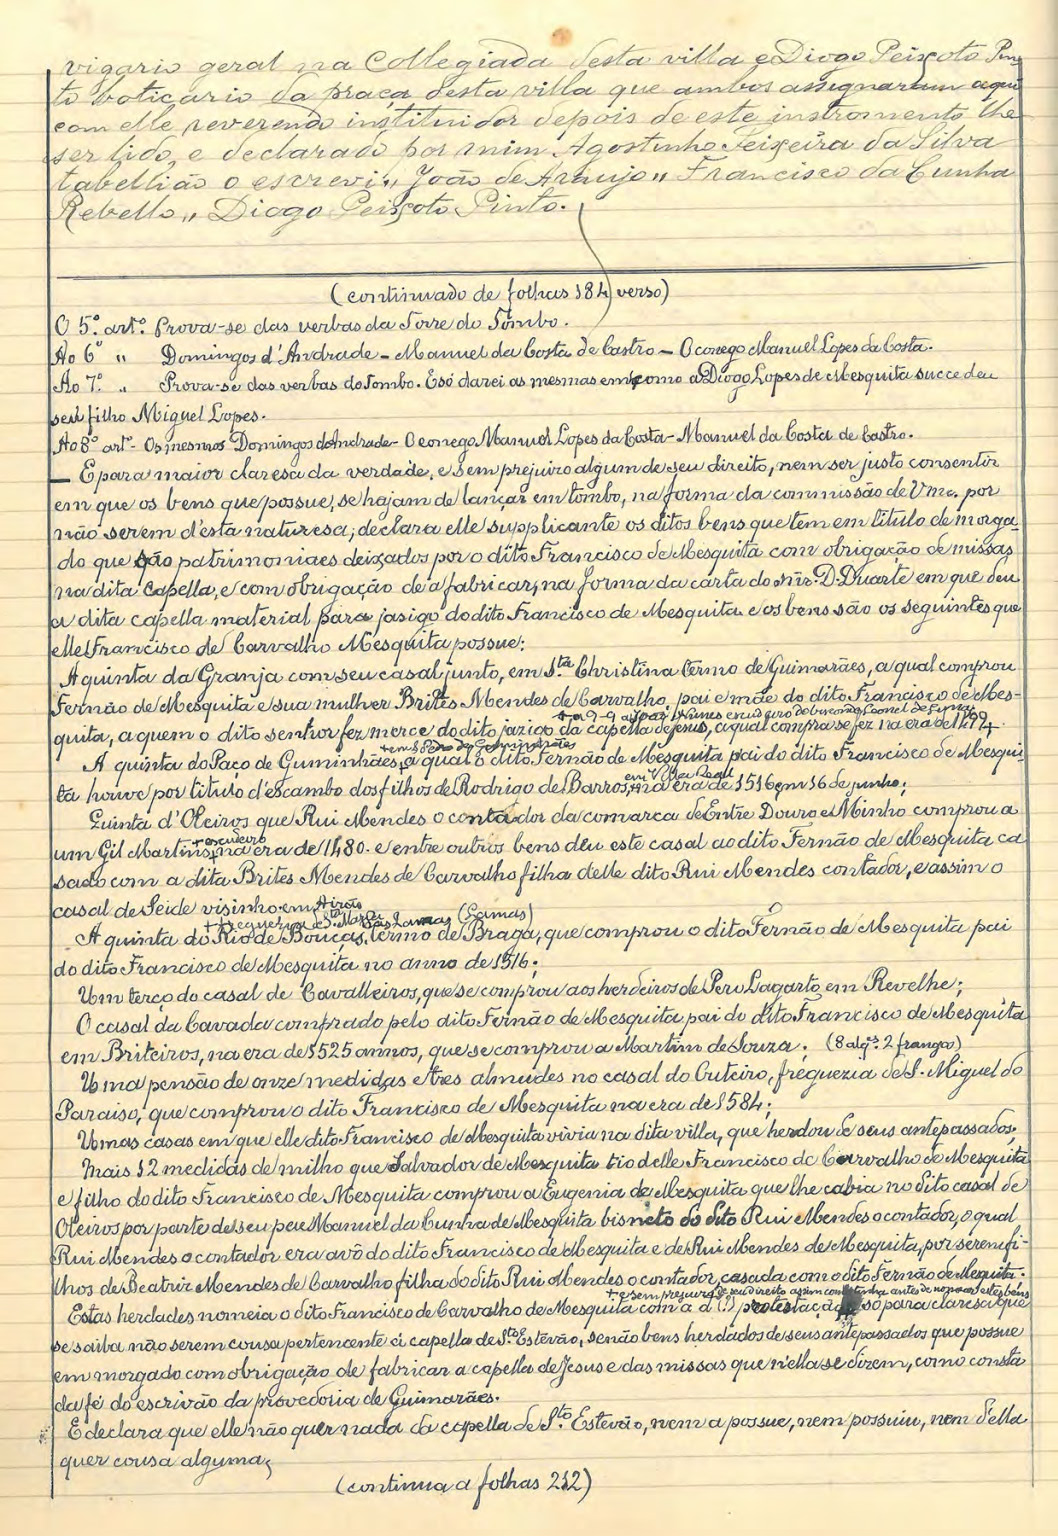 vigario geral na Collegiada desta villa e Diogo Peixoto Pin
to boticario da praça desta villa que ambos assignaram aqui
com elle reverendo instituidor depois de este instromento lhe
ser lido, e declarado por mim Agostinho Teixeira da Silva
tabellião o escrevi,, João de Araujo,, Francisco da Cunha
Rebello,, Diogo Peixoto Pinto.
(continuado de folhas 184 verso)
O 5º. artº. Prova-se das verbas da Torre do Tombo.
Ao 6º ,, Domingos d'Andrade - Manuel da Costa de Castro - O conego Manuel Lopes da Costa.
Ao 7º. ,, Prova-se das verbas do Tombo. E só darei as mesmas em como a Diogo Lopes de Mesquita succedeu
seu filho Miguel Lopes.
Ao 8º artº - Os mesmos Domingos d'Andrade - O conego Manuel Lopes da Costa - Manuel da Costa de Castro.
— E para maior claresa da verdade, e sem prejuizo algum de seu direito, nem ser justo consentir
em que os bens que possue, se hajam de lançar em tombo, na forma da commissão de Vmc. por
não serem d'esta naturesa, declara elle supplicante os ditos bens que tem em titulo de morga-
do que são patrimoniaes deixados por o dito Francisco de Mesquita com obrigação de missas
na dita capella, e com obrigação de a fabricar, na forma da carta do snr. D. Duarte em que deu
a dita capella material para jasigo do dito Francisco de Mesquita e os bens são os seguintes que
elle Francisco de Carvalho Mesquita possue:
A quinta da Granja com seu casal junto, em Sta Christina termo de Guimarães, a qual comprou
Fernão de Mesquita e sua mulher Brites Mendes de Carvalho, pai e mãe do dito Francisco de Mes-
quita, a quem o dito senhor fez merce do dito jazigo da capella de Jesus, a qual compra se fez na era de 1499.
A quinta do Paço de Guminhães, a qual o dito Fernão de Mesquita pai do dito Francisco de Mesqui-
ta houve por titulo d'escambo dos filhos de Rodrigo de Barros, + em Villa Real na era de 1516 em 16 de junho;
Quinta d'Oleiros que Rui Mendes o contador da comarca de Entre Douro e Minho comprou a
um Gil Martins, + escudeiro na era de 1480. e entre outros bens deu este casal ao dito Fernão de Mesquita ca
sado com a dita Brites Mendes de Carvalho filha delle dito Rui Mendes contador, e assim o
casal de Seide visinho em Airão
A quinta do Rio de Bouças, termo de Braga, que comprou o dito Fernão de Mesquita pai
do dito Francisco de Mesquita no anno de 1516;
Um terço do casal de Cavalleiros, que se comprou aos herdeiros de Pero Lagarto em Revelhe;
O casal da Cavada comprado pelo dito Fernão de Mesquita pai do dito Francisco de Mesquita
em Briteiros, na era de 1525 annos, que se comprou a Martim de Souza; (8 alqs. 2 frangos)
Uma pensão de onze medidas e tres almudes no casal do Outeiro, freguezia de S. Miguel do
Paraiso, que comprou o dito Francisco de Mesquita na era de 1584;
Umas casas em que elle dito Francisco de Mesquita vivia na dita villa, que herdou de seus antepassados;
Mais 12 medidas de milho que Salvador de Mesquita tio delle Francisco de Carvalho de Mesquita
e filho do dito Francisco de Mesquita comprou a Eugenia de Mesquita que lhe cabia no dito casal de
Oleiros por parte de seu pae Manuel da Cunha de Mesquita bisneto do dito Rui Mendes o contador, o qual
Rui Mendes o contador era avô do dito Francisco de Mesquita e de Rui Mendes de Mesquita, por serem fi-
lhos de Beatriz Mendes de Carvalho filha do dito Rui Mendes o contador, casada com o dito Fernão de Mesquita.
Estas herdades nomeia o dito Francisco de Carvalho de Mesquita com a d (?) protestação só para claresa que
se saiba não serem cousa pertencente á capella de Sto Estevão, senão bens herdados de seus antepassados que possue
em morgado com obrigação de fabricar a capella de Jesus e das missas que n'ella se dizem, como consta
da fé do escrivão da provedoria de Guimarães.
E declara que elle não quer nada da capella de Sto Estevão, nem a possue, nem possuiu, nem d'ella
quer cousa alguma;
(continua a folhas 212)